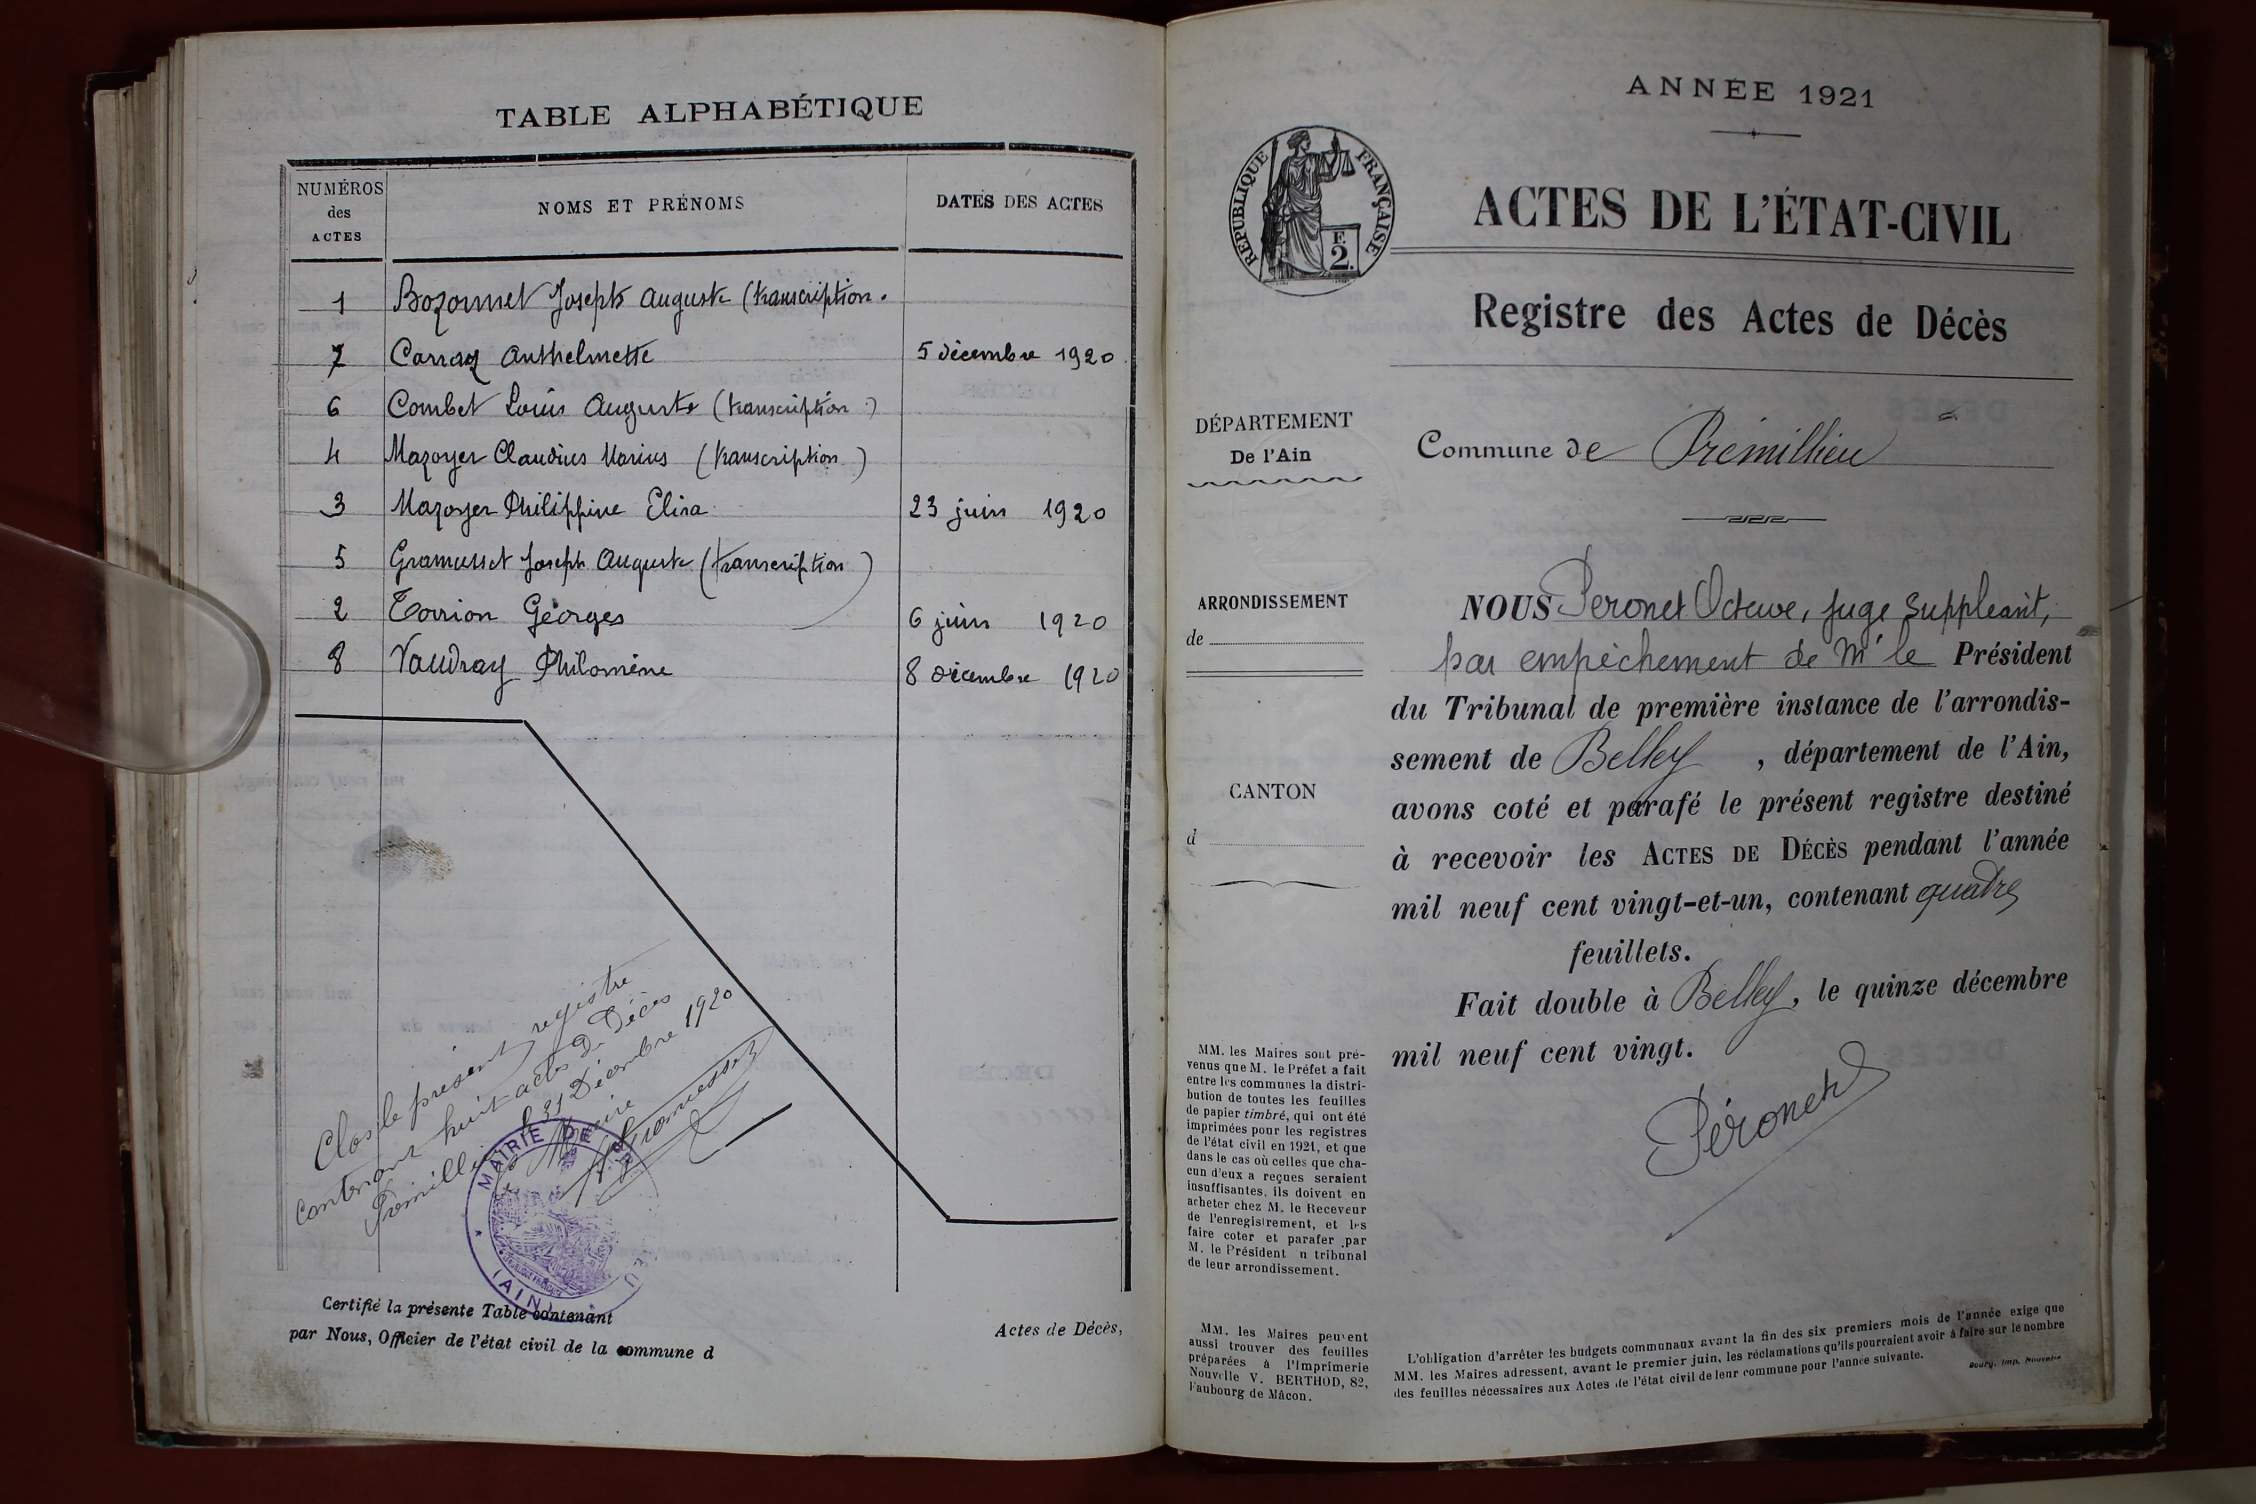 TABLE ALPHABÉTIQUE
NUMÉROS
des
ACTES
NOMS ET PRÉNOMS
DATES DES ACTES
1 Bozonnet Joseph Auguste (transcription.
7 Carraz Anthelmette 5 décembre 1920
6 Combet Louis Auguste (transcription)
4 Mazoyer Claudius Marius (transcription)
3 Mazoyer Philippine Elisa 23 juin 1920
5 Gramusset Joseph Auguste (transcription)
2 Torrion Georges 6 juin 1920
8 Vaudray Philomène 8 décembre 1920
Clos le présent registre
contenant huit actes de Décès
Prémillieu le 31 Décembre 1920
Le Maire
Gramusset
MAIRIE DE
(AIN)
Certifié la présente Table contenant
Actes de Décès,
par Nous, Officier de l'état civil de la commune d
ANNÉE 1921
RÉPUBLIQUE FRANÇAISE
F.
2.
ACTES DE L'ÉTAT-CIVIL
Registre des Actes de Décès
DÉPARTEMENT
De l'Ain
Commune de Prémillieu
ARRONDISSEMENT
de
CANTON
d
NOUS Peronet Octave, Juge Suppléant,
par empêchement de Mr le Président
du Tribunal de première instance de l'arrondis-
sement de Belley, département de l'Ain,
avons coté et parafé le présent registre destiné
à recevoir les ACTES DE DÉCÈS pendant l'année
mil neuf cent vingt-et-un, contenant quatre
feuillets.
Fait double à Belley, le quinze décembre
mil neuf cent vingt.
Péronet
MM. les Maires sont pré-
venus que M. le Préfet a fait
entre les communes la distri-
bution de toutes les feuilles
de papier timbré, qui ont été
imprimées pour les registres
de l'état civil en 1921, et que
dans le cas où celles que cha-
cun d'eux a reçues seraient
insuffisantes, ils doivent en
acheter chez M. le Receveur
de l'enregistrement, et les
faire coter et parafer par
M. le Président n tribunal
de leur arrondissement.
MM. les Maires peuvent
aussi trouver des feuilles
préparées à l'Imprimerie
Nouvelle V. BERTHOD, 82,
Faubourg de Mâcon.
L'obligation d'arrêter les budgets communaux avant la fin des six premiers mois de l'année exige que
MM. les Maires adressent, avant le premier juin, les réclamations qu'ils pourraient avoir à faire sur le nombre
des feuilles nécessaires aux Actes de l'état civil de leur commune pour l'année suivante.
Bourg, Imp. Nouvelle